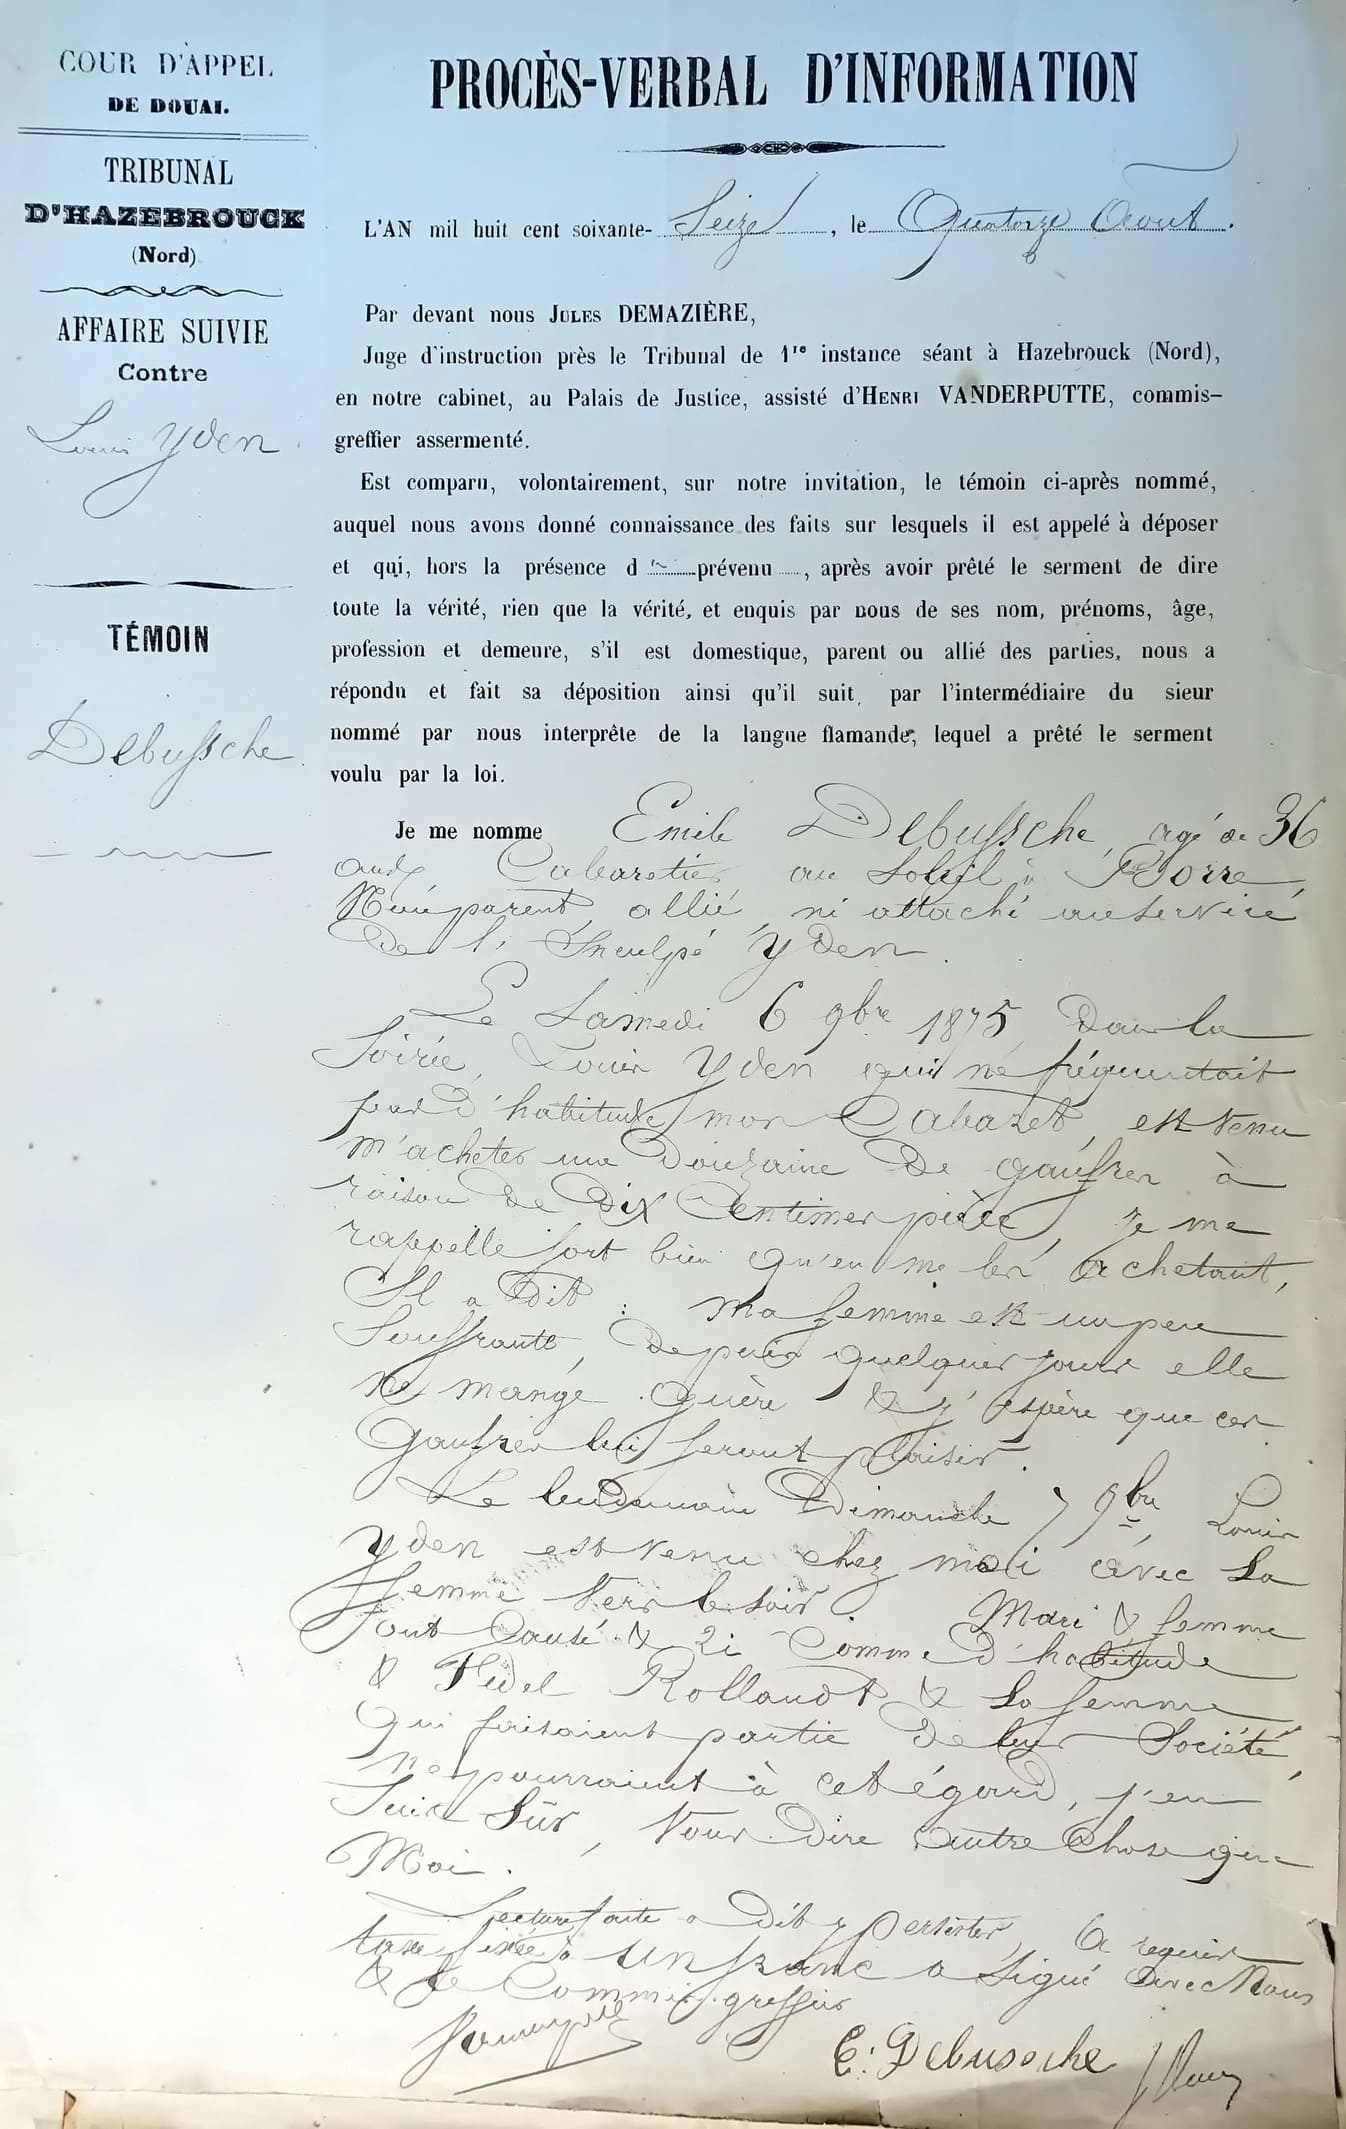 COUR D'APPEL
DE DOUAI.
TRIBUNAL
D'HAZEBROUCK
(Nord)
AFFAIRE SUIVIE
Contre
Louis Yden
TÉMOIN
Debussche
PROCÈS-VERBAL D'INFORMATION
L'AN mil huit cent soixante- Seize, le Quatorze Aout.
Par devant nous JULES DEMAZIÈRE,
Juge d'instruction près le Tribunal de 1re instance séant à Hazebrouck (Nord),
en notre cabinet, au Palais de Justice, assisté d'HENRI VANDERPUTTE, commis-
greffier assermenté.
Est comparu, volontairement, sur notre invitation, le témoin ci-après nommé,
auquel nous avons donné connaissance des faits sur lesquels il est appelé à déposer
et qui, hors la présence du prévenu, après avoir prêté le serment de dire
toute la vérité, rien que la vérité, et enquis par nous de ses nom, prénoms, âge,
profession et demeure, s'il est domestique, parent ou allié des parties, nous a
répondu et fait sa déposition ainsi qu'il suit, par l'intermédiaire du sieur
nommé par nous interprête de la langue flamande, lequel a prêté le serment
voulu par la loi.
Je me nomme Emile Debussche, agé de 36
ans, Cabaretier au Soleil à Borre,
Ni parent, allié, ni attaché au service
De l'Inculpé Yden.
Le Samedi 6 9bre 1875, Dans la
Soirée, Louis Yden qui ne fréquentait
pas d'habitude mon Cabaret, est venu
m'acheter une Douzaine De gaufres à
raison De Dix Centimes pièce, je me
rappelle fort bien qu'en me les achetant,
Il a Dit : ma femme est un peu
Souffrante, Depuis quelques jours elle
ne mange guère & j'espère que ces
gaufres lui feront plaisir.
Le lendemain Dimanche 7 9bre, Louis
Yden est venu chez moi avec Sa
femme Vers le soir. Mari & femme
ont Causé & ri Comme D'habitude
& Fidel Rollandt & Sa femme
Qui faisaient partie De leur Société,
ne pourraient à cet égard, j'en
Suis Sûr, Vous Dire autre Chose que
Moi.
Lecture faite a Dit y persister, a requis
taxe fixée à un franc a Signé avec Nous
& le Commis greffier
E. Debussche